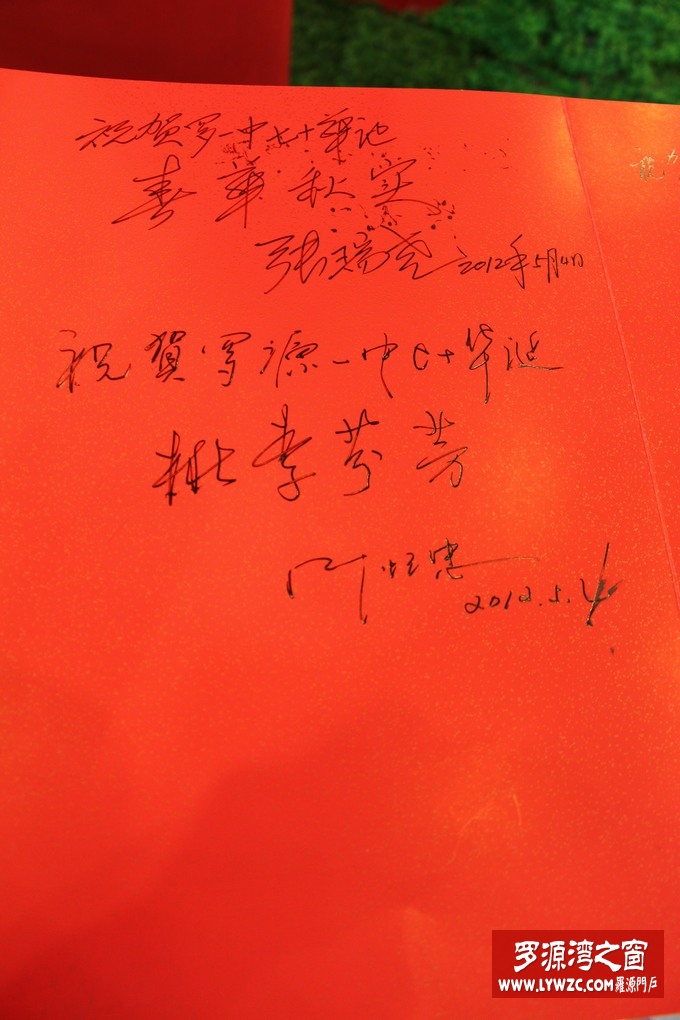 祝贺罗一中七十华诞
春华秋实
张瑞尧 2012年5月4日
祝賀罗源一中七十华诞
桃李芬芳
2012.5.4
罗源湾之窗
WWW.LYWZC.COM羅源門戶